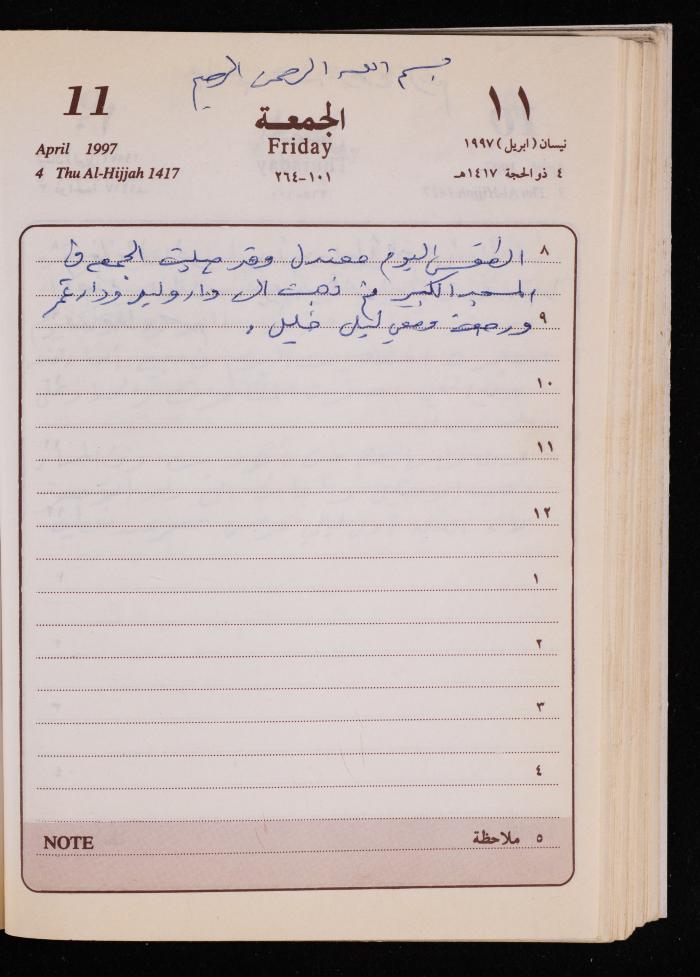 بسم الله الرحمن الرحيم
11
١١
الجمعة
Friday
April 1997
نيسان (ابريل) ١٩٩٧
4 Thu Al-Hijjah 1417
٤ ذو الحجة ١٤١٧هـ
١٠١-٢٦٤
٨
الطقس اليوم معتدل وقد صليت الجمعة في
المسجد الكبير ثم ذهبت الى دار وليد ودار عمر
٩
ورجعت
١٠
١١
١٢
١
٢
٣
٤
NOTE
٥ ملاحظة